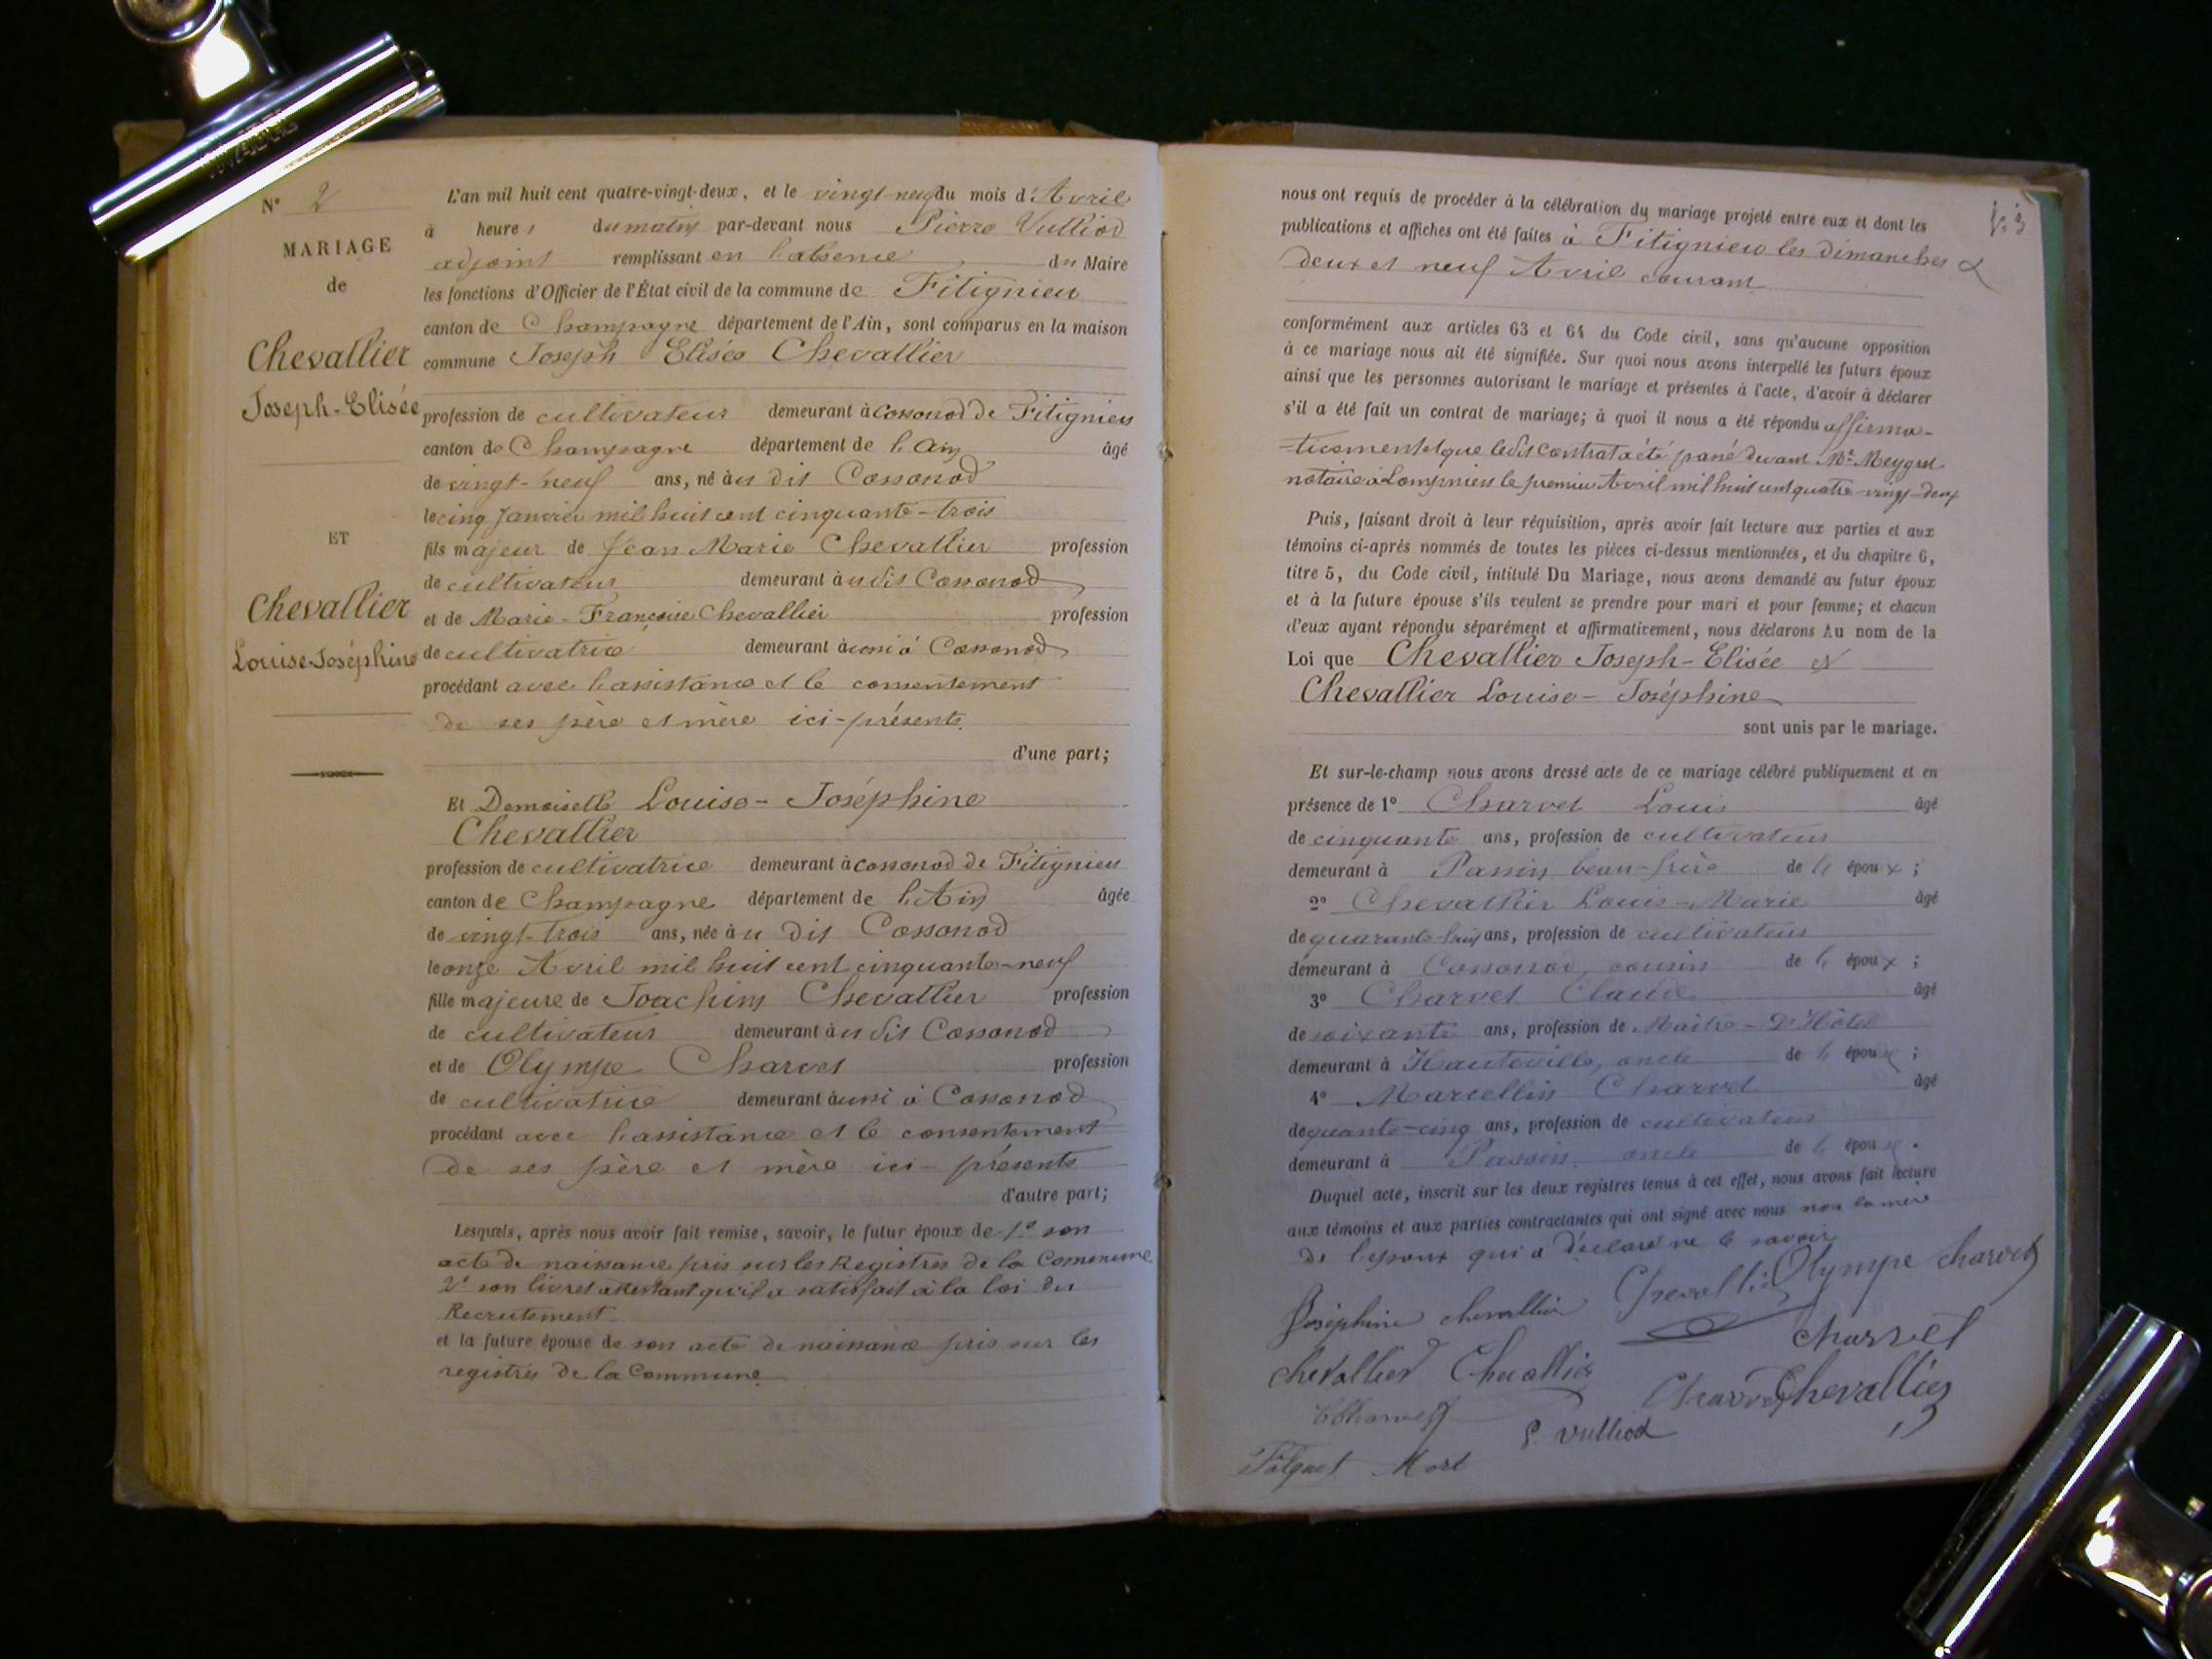 N° 2
MARIAGE
de
Chevallier
Joseph-Elisée
ET
Chevallier
Louise-Joséphine
L'an mil huit cent quatre-vingt-deux, et le vingt-neuf du mois d'Avril
à heures du matin par-devant nous Pierre Vulliod
adjoint remplissant en l'absence du Maire
les fonctions d'Officier de l'État civil de la commune de Fitignieu
canton de Champagne département de l'Ain, sont comparus en la maison
commune Joseph Elisée Chevallier
profession de cultivateur demeurant à Cossonod de Fitignieu
canton de Champagne département de l'Ain âgé
de vingt-neuf ans, né au dit Cossonod
le cinq Janvier mil huit cent cinquante-trois
fils majeur de Jean Marie Chevallier profession
de cultivateur demeurant au dit Cossonod
et de Marie-Françoise Chevallier profession
de cultivatrice demeurant aussi à Cossonod
procédant avec l'assistance et le consentement
de ses père et mère ici-présents
d'une part;
Et Demoiselle Louise-Joséphine
Chevallier
profession de cultivatrice demeurant à Cossonod de Fitignieu
canton de Champagne département de l'Ain âgée
de vingt-trois ans, née au dit Cossonod
le onze Avril mil huit cent cinquante-neuf
fille majeure de Joachim Chevallier profession
de cultivateur demeurant au dit Cossonod
et de Olympe Charvet profession
de cultivatrice demeurant aussi à Cossonod
procédant avec l'assistance et le consentement
de ses père et mère ici-présents
d'autre part;
Lesquels, après nous avoir fait remise, savoir, le futur époux de 1° son
acte de naissance pris sur les Registres de la Commune
2° son livret attestant qu'il a satisfait à la loi du
Recrutement.
et la future épouse de son acte de naissance pris sur les
registres de la Commune
nous ont requis de procéder à la célébration du mariage projeté entre eux et dont les
publications et affiches ont été faites à Fitignieu les dimanches
deux et neuf Avril courant
conformément aux articles 63 et 64 du Code civil, sans qu'aucune opposition
à ce mariage nous ait été signifiée. Sur quoi nous avons interpellé les futurs époux
ainsi que les personnes autorisant le mariage et présentes à l'acte, d'avoir à déclarer
s'il a été fait un contrat de mariage; à quoi il nous a été répondu affirma-
=tivement et que le dit contrat a été passé devant Me Meygret
notaire à Lompnieu le premier Avril mil huit cent quatre-vingt-deux
Puis, faisant droit à leur réquisition, après avoir fait lecture aux parties et aux
témoins ci-après nommés de toutes les pièces ci-dessus mentionnées, et du chapitre 6,
titre 5, du Code civil, intitulé Du Mariage, nous avons demandé au futur époux
et à la future épouse s'ils veulent se prendre pour mari et pour femme; et chacun
d'eux ayant répondu séparément et affirmativement, nous déclarons Au nom de la
Loi que Chevallier Joseph-Elisée et
Chevallier Louise-Joséphine
sont unis par le mariage.
Et sur-le-champ nous avons dressé acte de ce mariage célébré publiquement et en
présence de 1° Charvet Louis âgé
de cinquante ans, profession de cultivateur
demeurant à Passin, beau-frère de l' époux ;
2° Chevallier Louis-Marie âgé
de quarante-huit ans, profession de cultivateur
demeurant à Cossonod, cousin de l' époux ;
3° Charvet Claude âgé
de soixante ans, profession de Maître-D'Hôtel
demeurant à Hauteville, oncle de l' épouse ;
4° Marcellin Charvet âgé
de quante-cinq ans, profession de cultivateur
demeurant à Passin, oncle de l' épouse.
Duquel acte, inscrit sur les deux registres tenus à cet effet, nous avons fait lecture
aux témoins et aux parties contractantes qui ont signé avec nous non la mère
de l'époux qui a déclaré ne le savoir
Joséphine chevallier Chevallier Olympe charvet
charvet
chevallier Chevallier
Charvet Chevallier
CCharvet
P. Vulliod